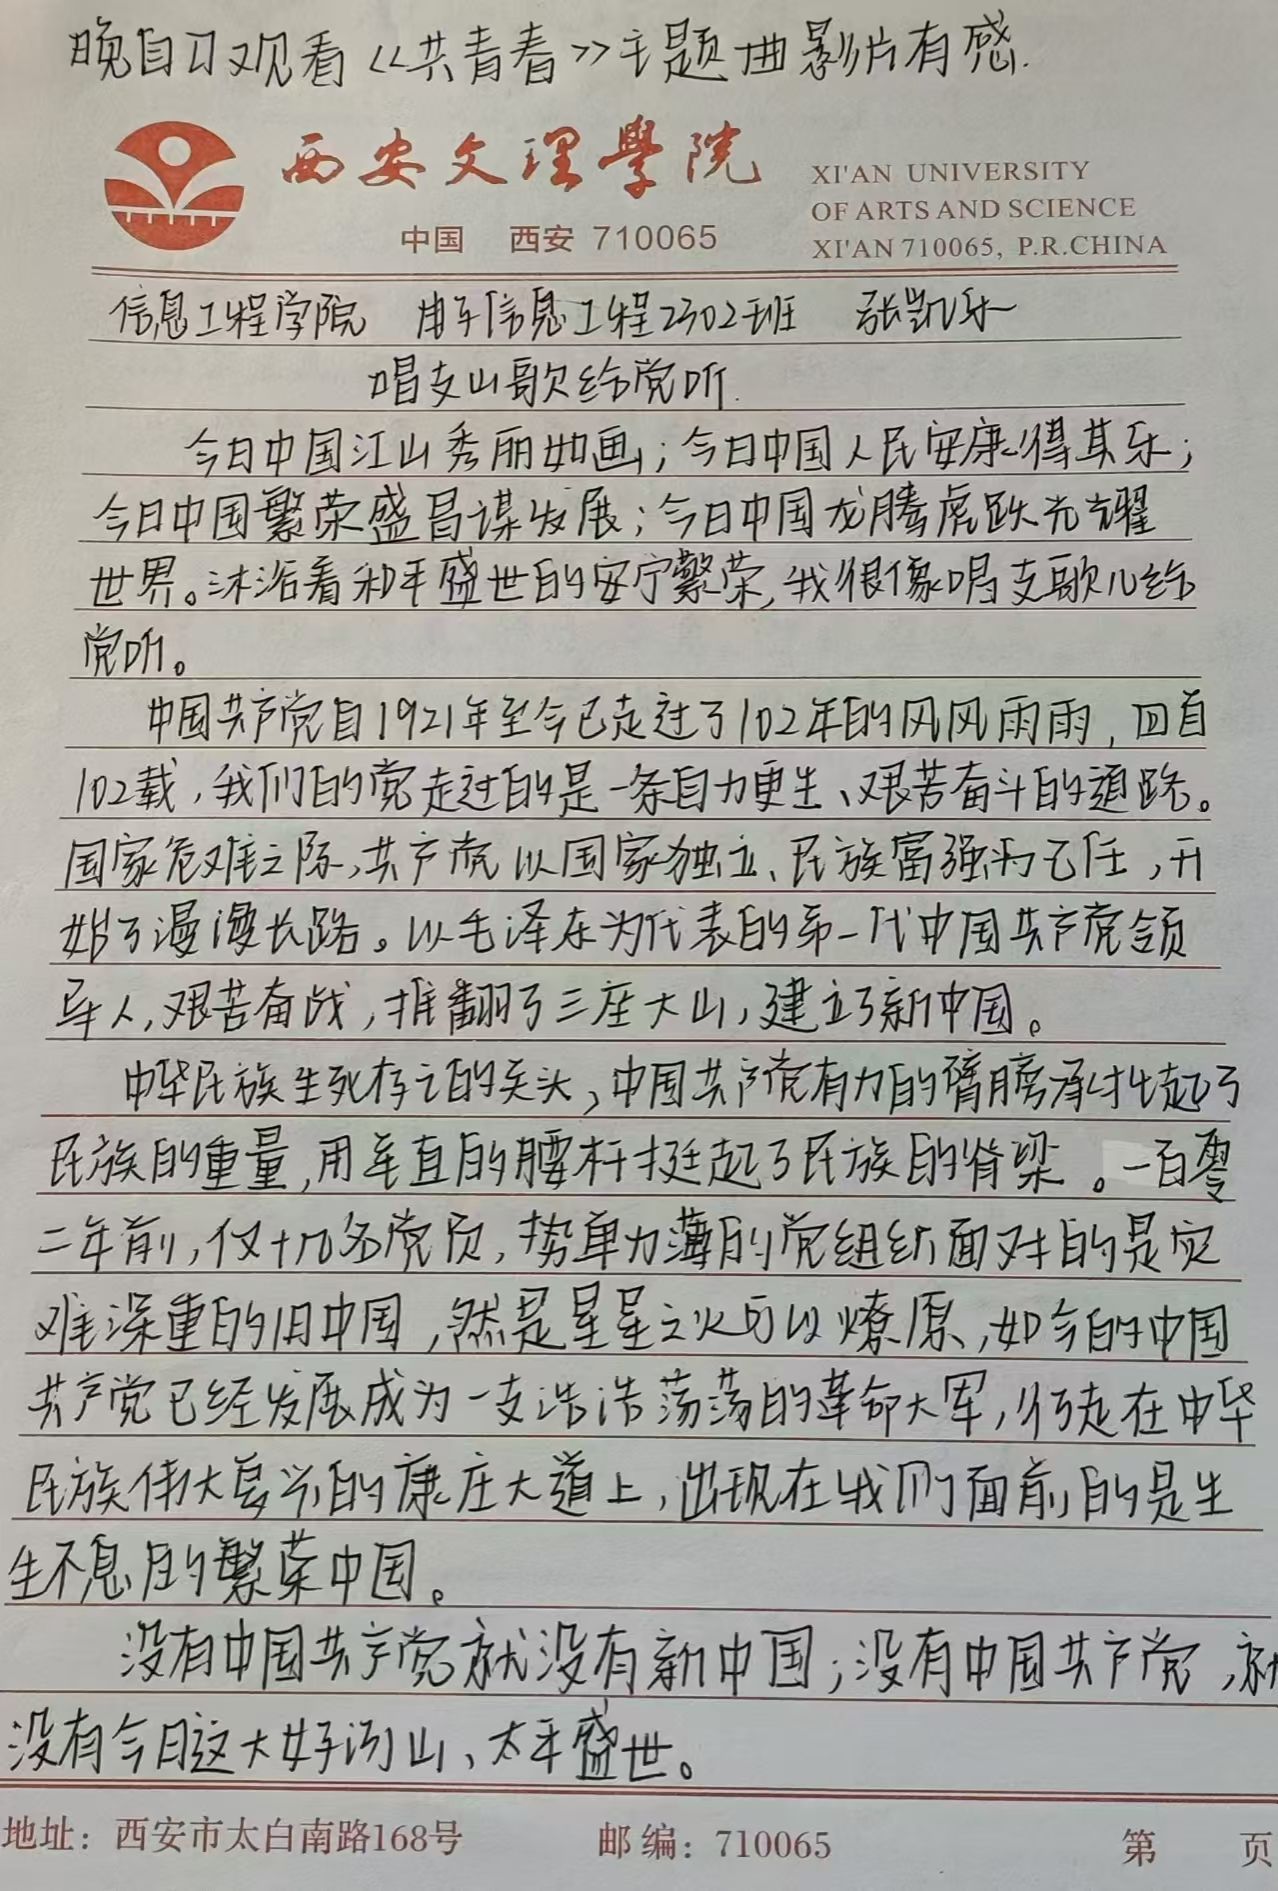 晚自习观看《共青春》主题曲影片有感.
西安文理學院
中国 西安 710065
XI'AN UNIVERSITY
OF ARTS AND SCIENCE
XI'AN 710065, P.R.CHINA
信息工程学院 电子信息工程2302班 张凯乐
唱支山歌给党听.
今日中国江山秀丽如画；今日中国人民安康得其乐；
今日中国繁荣盛昌谋发展；今日中国龙腾虎跃光耀
世界。沐浴着和平盛世的安宁繁荣，我很像唱支歌儿给
党听。
中国共产党自1921年至今已走过了102年的风风雨雨，回首
102载，我们的党走过的是一条自力更生、艰苦奋斗的道路。
国家危难之际，共产党以国家独立、民族富强为己任，开
始了漫漫长路。以毛泽东为代表的第一代中国共产党领
导人，艰苦奋战，推翻了三座大山，建立了新中国。
中华民族生死存亡的关头，中国共产党有力的臂膀承担起了
民族的重量，用笔直的腰杆挺起了民族的脊梁。一百零
二年前，仅十几名党员，势单力薄的党组织面对的是灾
难深重的旧中国，然是星星之火可以燎原，如今的中国
共产党已经发展成为一支浩浩荡荡的革命大军，行走在中华
民族伟大复兴的康庄大道上，出现在我们面前的是生
生不息的繁荣中国。
没有中国共产党就没有新中国；没有中国共产党，就
没有今日这大好河山、太平盛世。
地址：西安市太白南路168号 邮编：710065 第 页